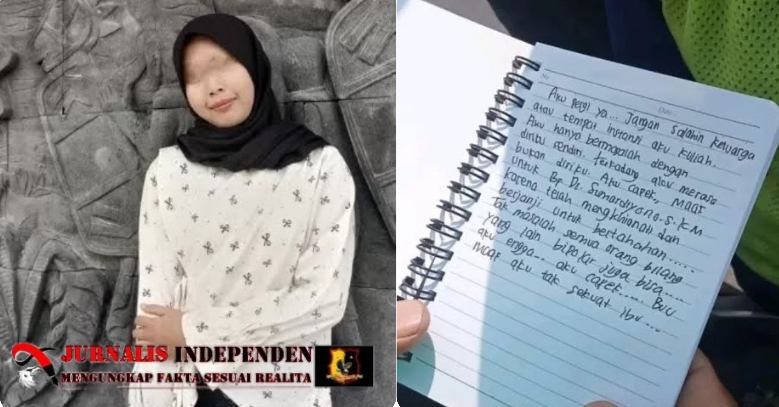 JURNALIS INDEPENDEN
MENGUNGKAP FAKTA SESUAI REALITA
No
Date:
Aku pergi ya... Jangan salahin keluarga
atau tempat instansi aku kuliah.
Aku hanya bermasalah dengan
diriku sendiri. terkadang aku merasa
bukan diriku. Aku capek, Maaf
untuk Bp. Dr. Sumardiyono.S.K.M
karena telah mengkhianati dan
berjanji untuk bertahan.....
Tak masalah semua orang bilang
yang lain bipolar juga bisa....
aku engga... aku capek.... Buu
Maaf aku tak sekuat ibu...